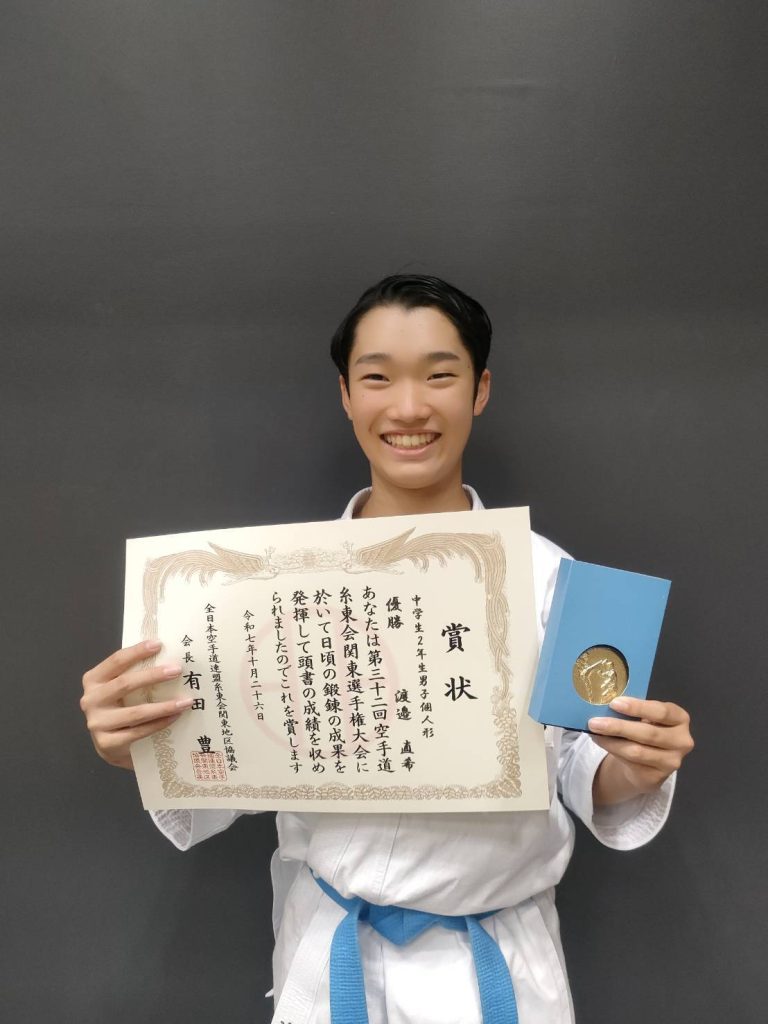 賞状
中学生2年生男子個人形
優勝 渡邉直希
あなたは第三十二回空手道
糸東会関東選手権大会に
於いて日頃の鍛錬の成果を
発揮して頭書の成績を収め
られましたのでこれを賞します
令和七年十月二十六日
全日本空手道連盟糸東会関東地区協議会
会長 有田 豊